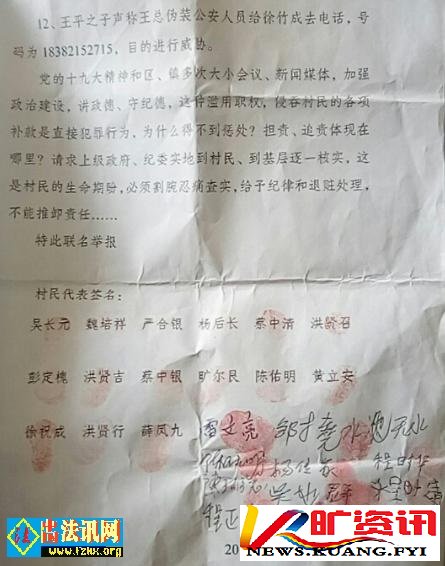 12、王平之子声称王总伪装公安人员给徐竹成去电话，号
码为 18382152715，目的进行威胁。
党的十九大精神和区、镇多次大小会议、新闻媒体，加强
政治建设，讲政德、守纪德，这种滥用职权，侵吞村民的各项
补款是直接犯罪行为，为什么得不到惩处？担责、追责体现在
哪里？请求上级政府、纪委实地到村民、到基层逐一核实，这
是村民的生命期盼，必须割腕忍痛查实，给于纪律和退赃处理，
不能推卸责任……
特此联名举报
村民代表签名：
吴长元 魏培祥 严合银 杨后长 蔡中清 洪贤召
彭定槐 洪贤吉 蔡中银 旷尔民 陈佑明 黄立安
徐祝成 洪贤行 薛凤九
程时华
程正
20
法 出法讯网
www.fzhx.org
旷资讯
NEWS.KUANG.FYI